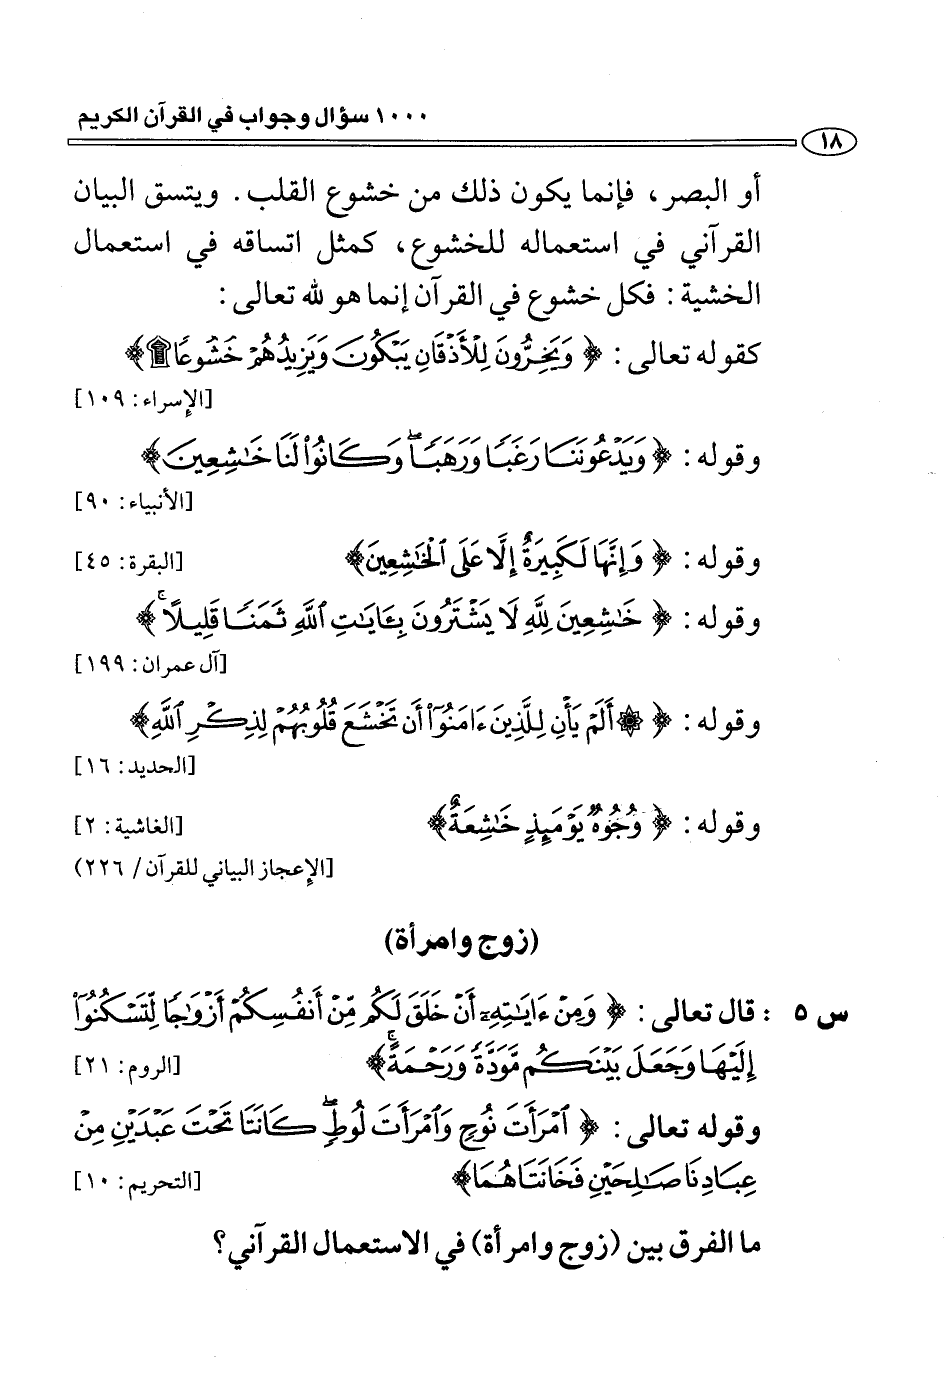 ١٠٠٠ سؤال وجواب في القرآن الكريم
١٨
أو البصر، فإنما يكون ذلك من خشوع القلب. ويتسق البيان
القرآني في استعماله للخشوع، كمثل اتساقه في استعمال
الخشية: فكل خشوع في القرآن إنما هو لله تعالى:
كقوله تعالى: ﴿وَيَخِرُّونَ لِلْأَذْقَانِ يَبْكُونَ وَيَزِيدُهُمْ خُشُوعًا ۩﴾
[الإسراء: ١٠٩]
وقوله: ﴿وَيَدْعُونَنَا رَغَبًا وَرَهَبًا ۖ وَكَانُوا۟ لَنَا خَـٰشِعِينَ﴾
[الأنبياء: ٩٠]
وقوله: ﴿وَإِنَّهَا لَكَبِيرَةٌ إِلَّا عَلَى ٱلْخَـٰشِعِينَ﴾ [البقرة: ٤٥]
وقوله: ﴿خَـٰشِعِينَ لِلَّهِ لَا يَشْتَرُونَ بِـَٔايَـٰتِ ٱللَّهِ ثَمَنًا قَلِيلًا ۚ﴾
[آل عمران: ١٩٩]
وقوله: ﴿۞ أَلَمْ يَأْنِ لِلَّذِينَ ءَامَنُوٓا۟ أَن تَخْشَعَ قُلُوبُهُمْ لِذِكْرِ ٱللَّهِ﴾
[الحديد: ١٦]
وقوله: ﴿وُجُوهٌ يَوْمَئِذٍ خَـٰشِعَةٌ﴾ [الغاشية: ٢]
[الإعجاز البياني للقرآن/ ٢٢٦)
(زوج وامرأة)
س ٥ : قال تعالى: ﴿وَمِنْ ءَايَـٰتِهِۦٓ أَنْ خَلَقَ لَكُم مِّنْ أَنفُسِكُمْ أَزْوَٰجًا لِّتَسْكُنُوٓا۟
إِلَيْهَا وَجَعَلَ بَيْنَكُم مَّوَدَّةً وَرَحْمَةً ۚ﴾ [الروم: ٢١]
وقوله تعالى: ﴿ٱمْرَأَتَ نُوحٍ وَٱمْرَأَتَ لُوطٍ ۖ كَانَتَا تَحْتَ عَبْدَيْنِ مِنْ
عِبَادِنَا صَـٰلِحَيْنِ فَخَانَتَاهُمَا﴾ [التحريم: ١٠]
ما الفرق بين (زوج وامرأة) في الاستعمال القرآني؟